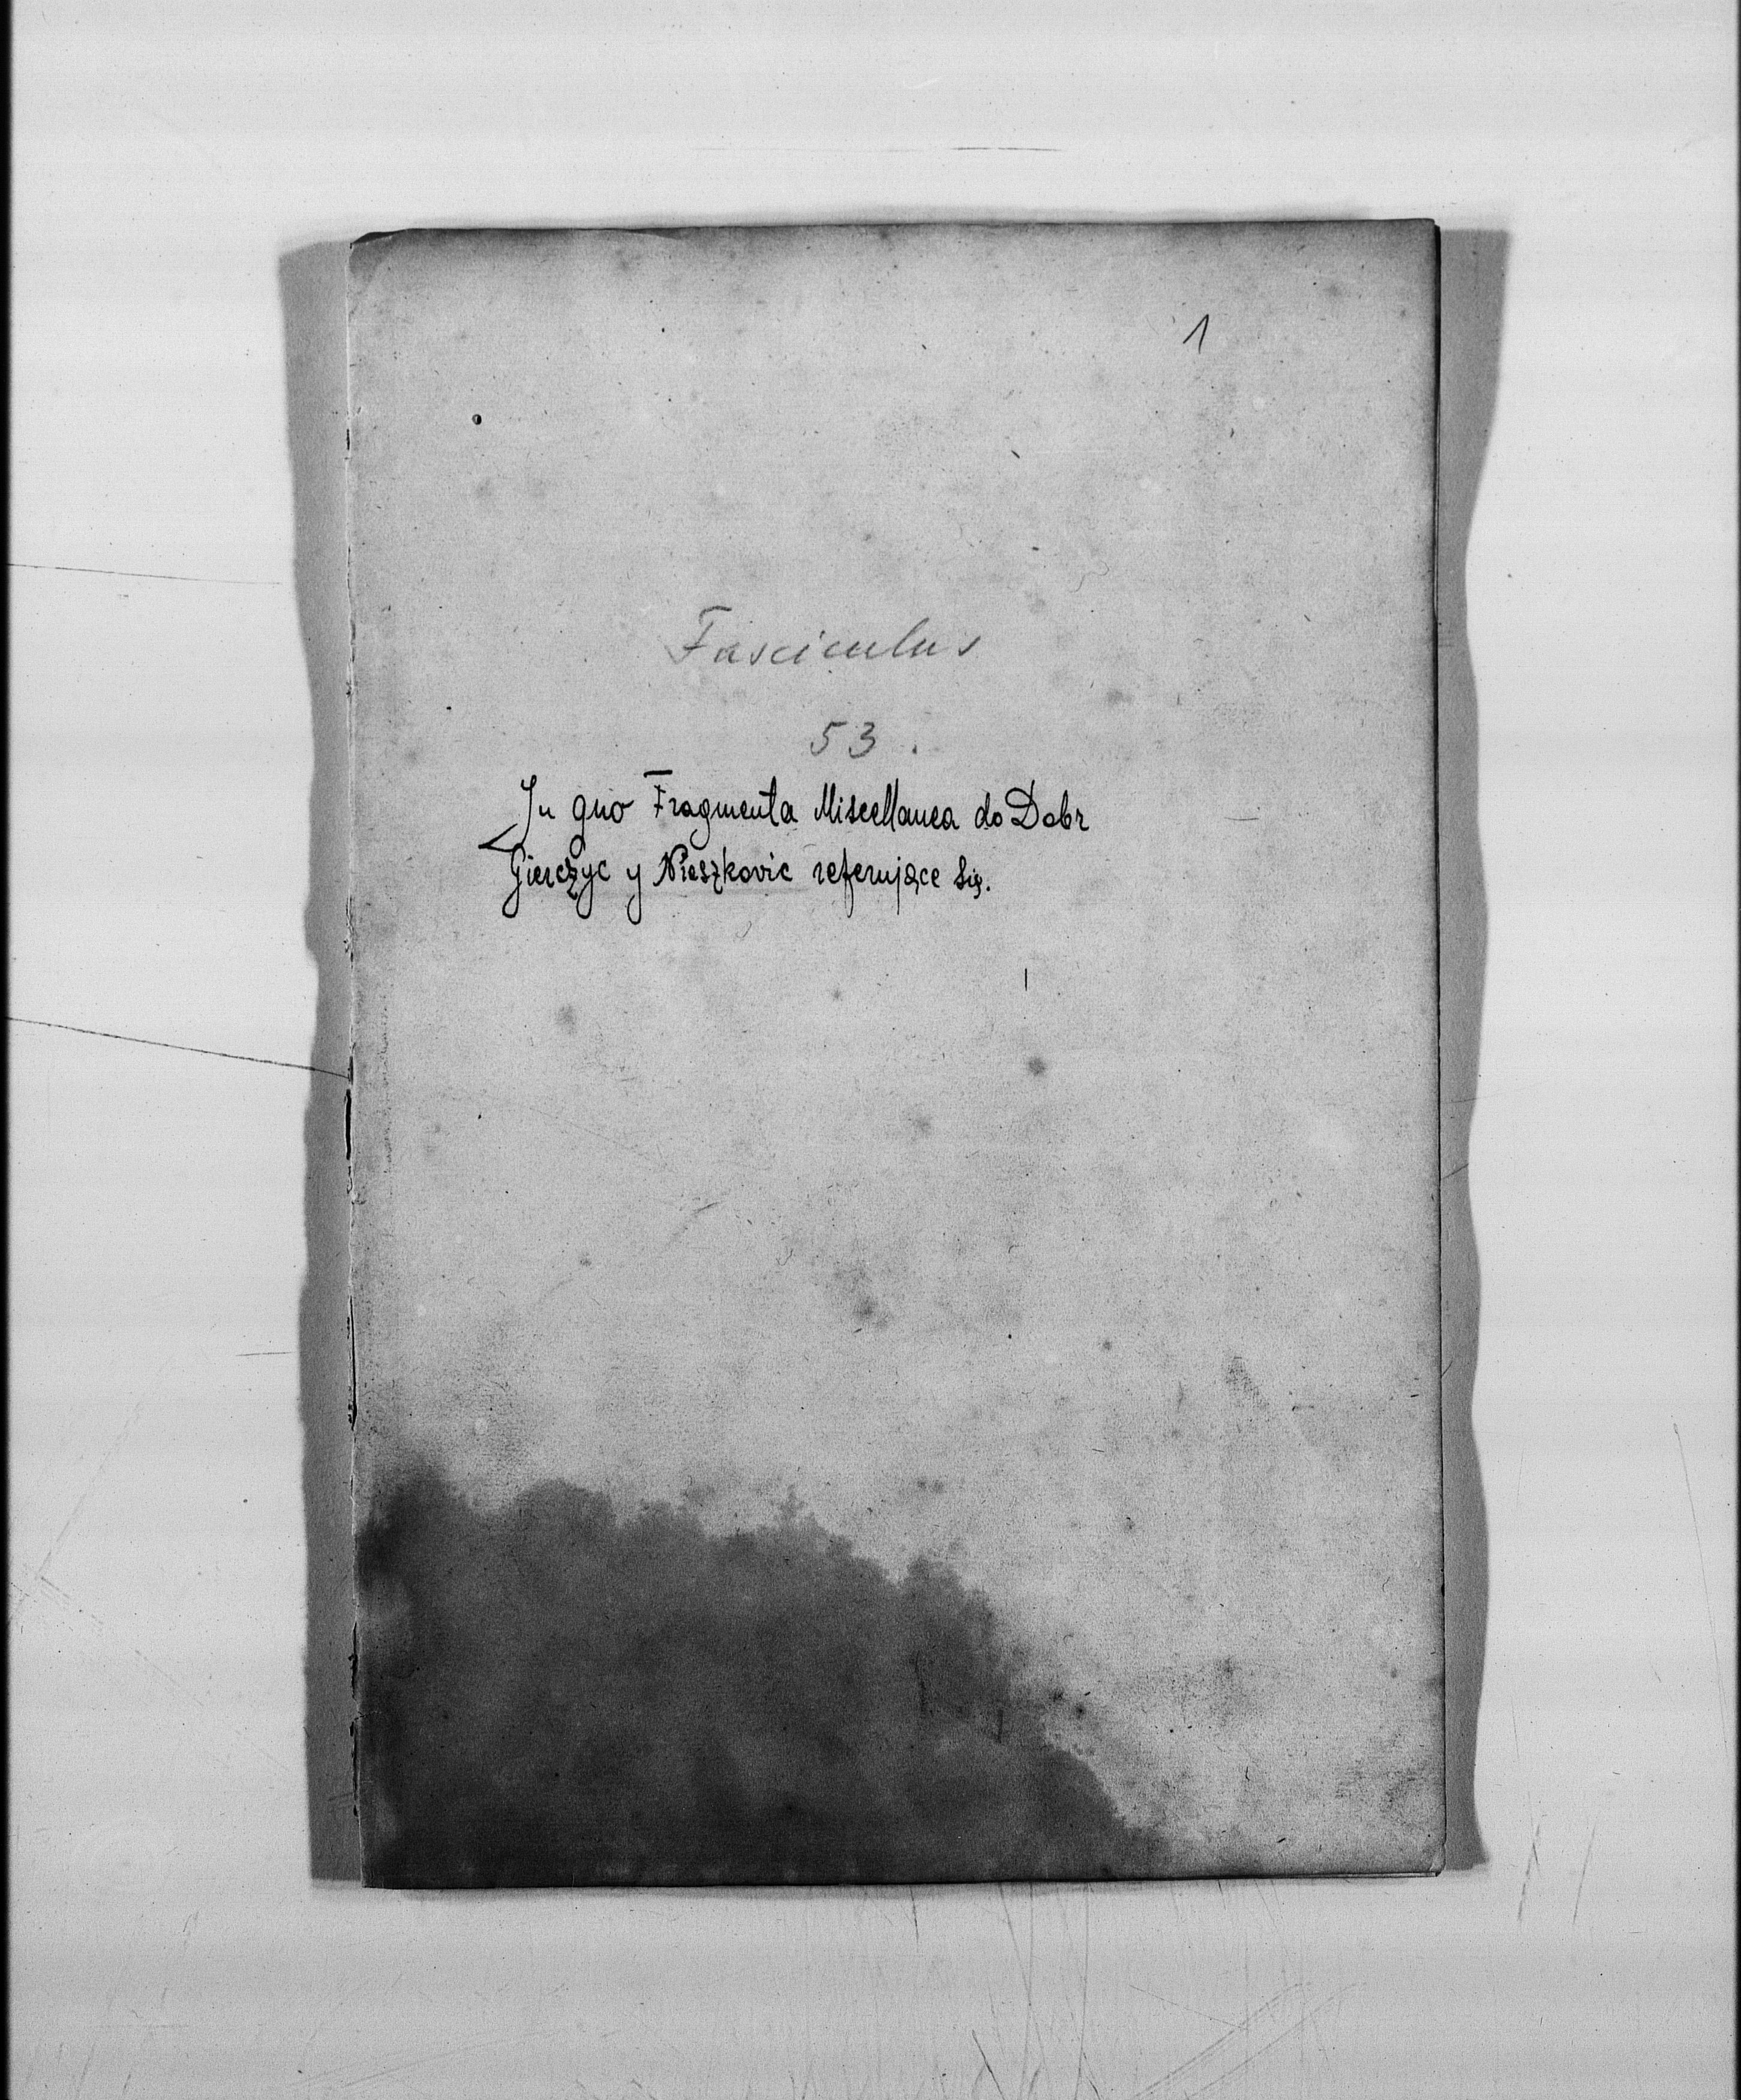 1
Fasciculus
53.
In quo Fragmenta Miscellanea do Dobr
Gierczyc y Nieszkovic referujące Się.